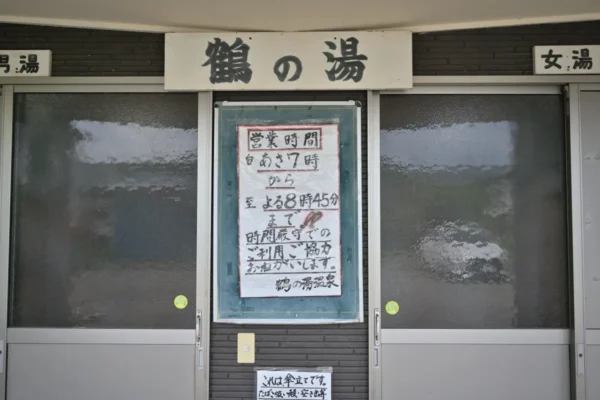 鶴の湯
男湯
女湯
営業時間
自あさ7時
から
至よる8時45分
まで
時間厳守での
ご利用ご協力
おねがいします。
鶴の湯温泉
これは傘立てです。